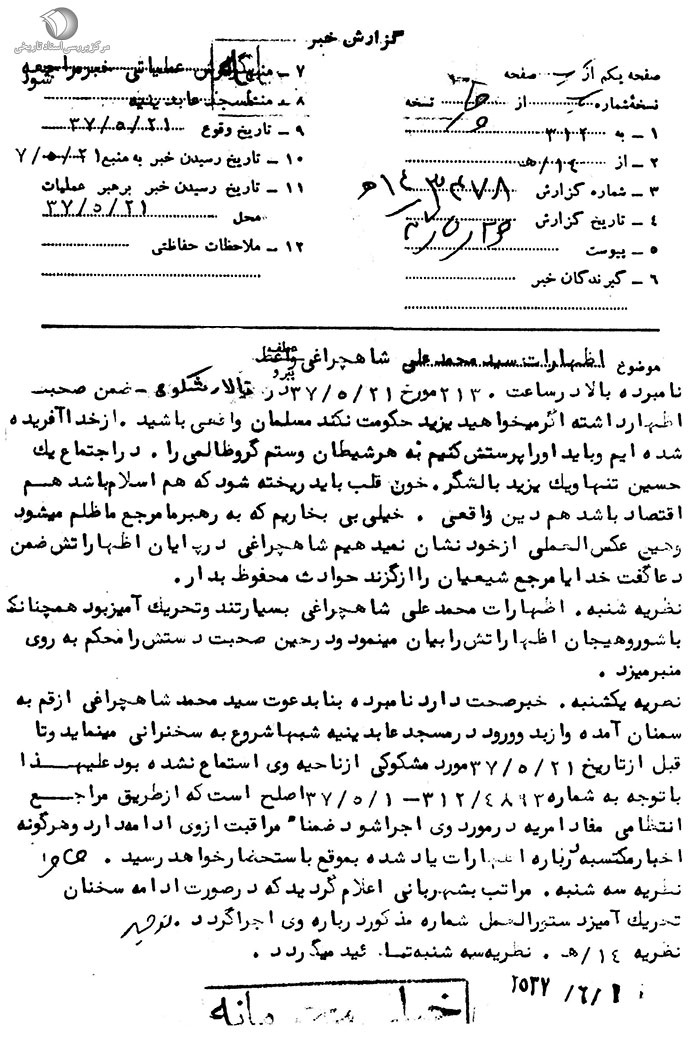 مرکز بررسی اسناد تاریخی
گزارش خبر
صفحه یکم از صفحه
نسخهٔ شماره از نسخه
۱ ــ به ۳۱۲
۲ ــ از ۱۴/هـ
۳ ــ شماره گزارش
۴ ــ تاریخ گزارش
۵ ــ پیوست
۶ ــ گیرندگان خبر
۷ ــ عملیاتی خبر مراجعه شود
۸ ــ مسجد عابدینیه
۹ ــ تاریخ وقوع ۳۷/۵/۲۱
۱۰ ــ تاریخ رسیدن خبر به منبع ۷/۵/۲۱
۱۱ ــ تاریخ رسیدن خبر برهبر عملیات
محل ۳۷/۵/۲۱
۱۲ ــ ملاحظات حفاظتی
موضوع اظهارات سید محمد علی شاهچراغی واعظ
نامبرده بالا در ساعت ۲۱۳۰ مورخ ۳۷/۵/۲۱ در ــ ضمن صحبت
اظهار داشته اگر میخواهید یزید حکومت نکند مسلمان واقعی باشید . از خدا آفریده
شده ایم و باید او را پرستش کنیم نه هر شیطان وستم گر و ظالمی را . در اجتماع یك
حسین تنها ویك یزید بالشگر . خون قلب باید ریخته شود که هم اسلام باشد هم
اقتصاد باشد هم دین واقعی . خیلی بی بخاریم که به رهبر ما مرجع ما ظلم میشود
وهیچ عکس العملی از خود نشان نمید هیم شاهچراغی در پایان اظهاراتش ضمن
دعا گفت خدایا مرجع شیعیان را از گزند حوادث محفوظ بدار .
نظریه شنبه . اظهارات محمد علی شاهچراغی بسیار تند وتحریك آمیز بود همچنانکه
با شور وهیجان اظهاراتش را بیان مینمود ودر حین صحبت دستش را محکم به روی
منبر میزد .
نظریه یکشنبه . خبر صحت دارد نامبرده بنا بدعوت سید محمد شاهچراغی از قم به
سمنان آمده واز بد و ورود در مسجد عابدینیه شبها شروع به سخنرانی مینماید وتا
قبل از تاریخ ۳۷/۵/۲۱ مورد مشکوکی از ناحیه وی استماع نشده بود علیهذا
با توجه به شماره ۳۱۲/۴۸۹۳ ــ ۳۷/۵/۱ اصلح است که از طریق مراجع
انتظامی مفاد امریه در مورد وی اجرا شود ضمنا" مراقبت از وی ادامه دارد وهرگونه
اخبار مکتسبه درباره اظهارات یاد شده بموقع باستحضار خواهد رسید .
نظریه سه شنبه . مراتب بشهربانی اعلام گردید که در صورت ادامه سخنان
تحریك آمیز دستورالعمل شماره مذکور درباره وی اجرا گردد .
نظریه ۱۴/هـ . نظریه سه شنبه تائید میگردد .
۲۵۳۷/۶/۱